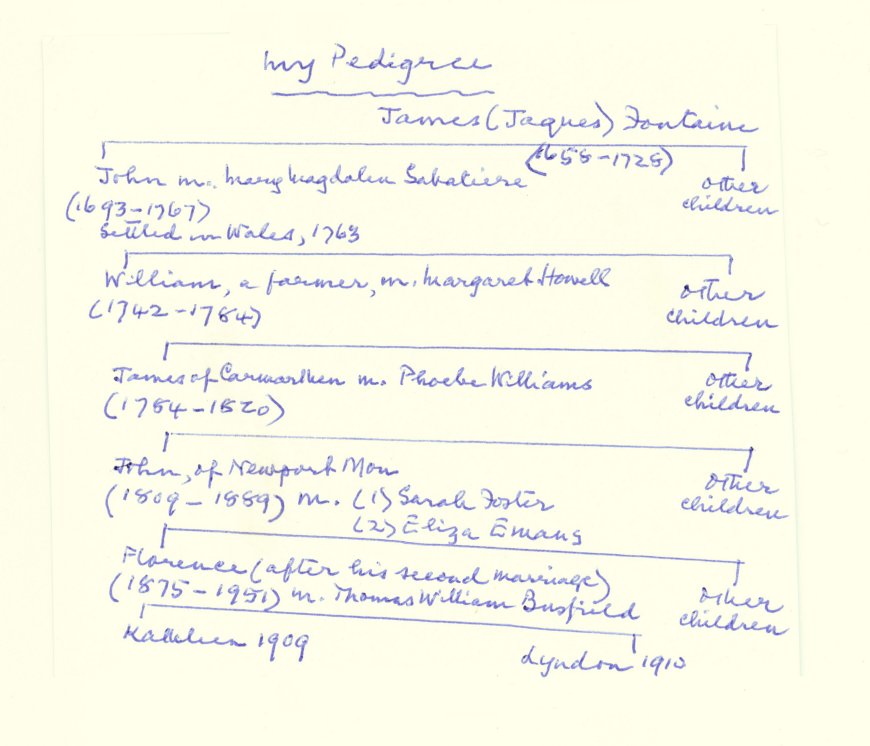 My Pedigree
James (Jaques) Fontaine
(1658-1728)
John m. Mary Magdalen Sabatiere
other
children
(1693-1767)
Settled in Wales, 1763
William, a farmer, m. Margaret Howell
other
children
(1742-1784)
James of Carmarthen m. Phoebe Williams
other
children
(1784-1820)
John, of Newport Mon
other
children
(1809-1889) m. (1) Sarah Foster
(2) Eliza Emans
Florence (after his second marriage)
other
children
(1875-1951) m. Thomas William Busfield
Kathleen 1909
Lyndon 1910